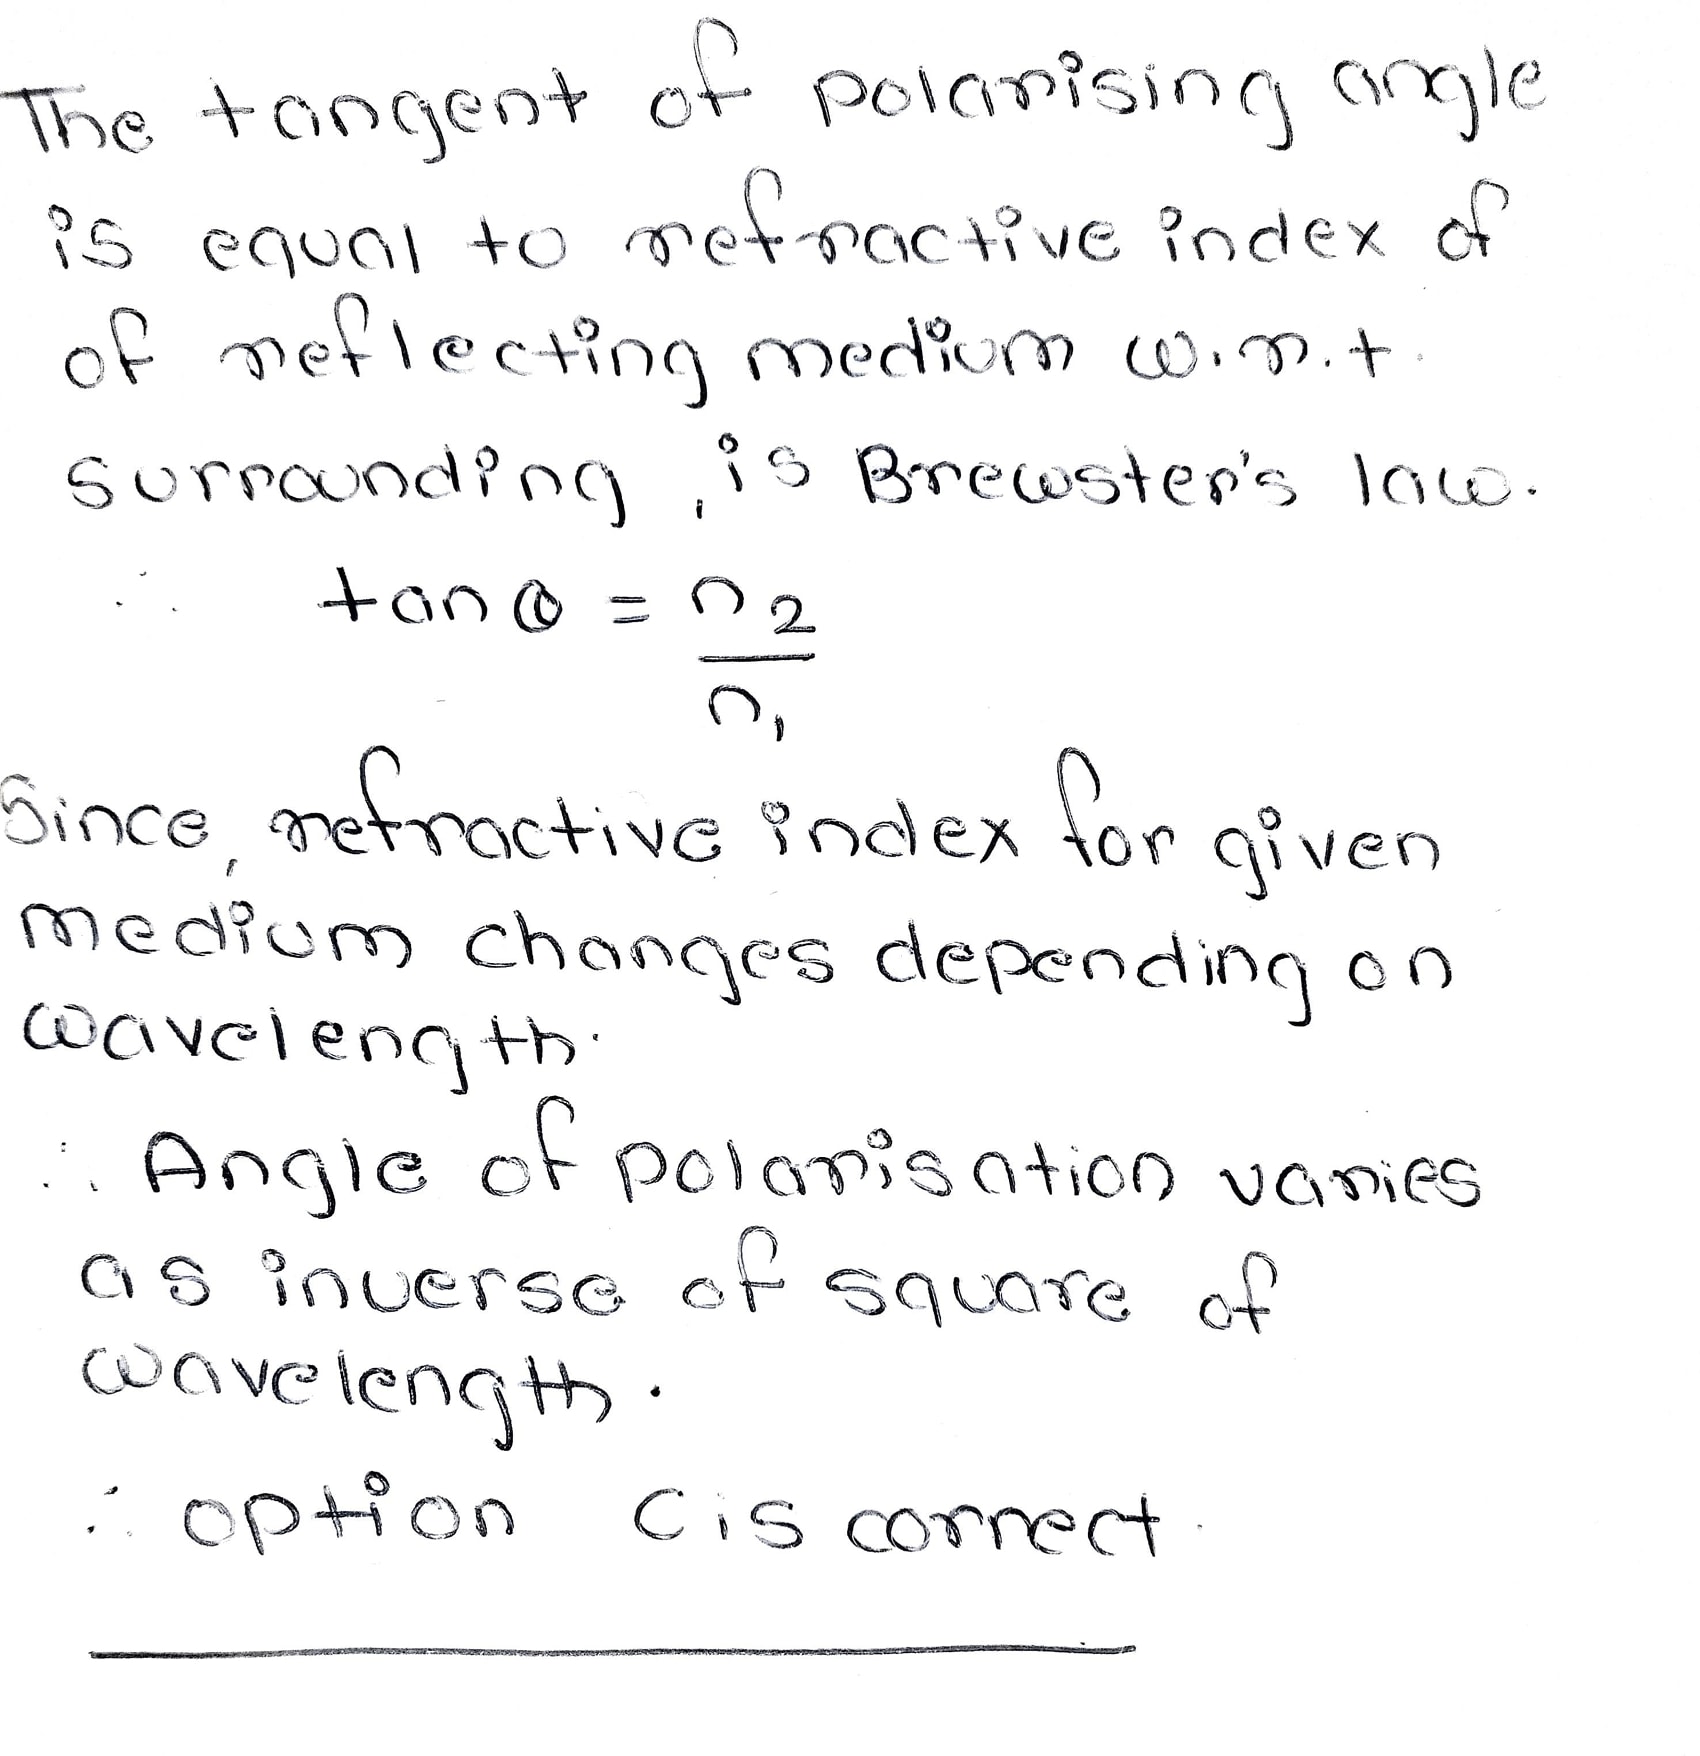 The tangent of polarising angle
is equal to refractive index of
of reflecting medium w.r.t.
surrounding , is Brewster's law.
∴ tan θ = n₂
n₁
Since, refractive index for given
medium changes depending on
wavelength.
∴ Angle of polarisation varies
as inverse of square of
wavelength.
∴ option C is correct.